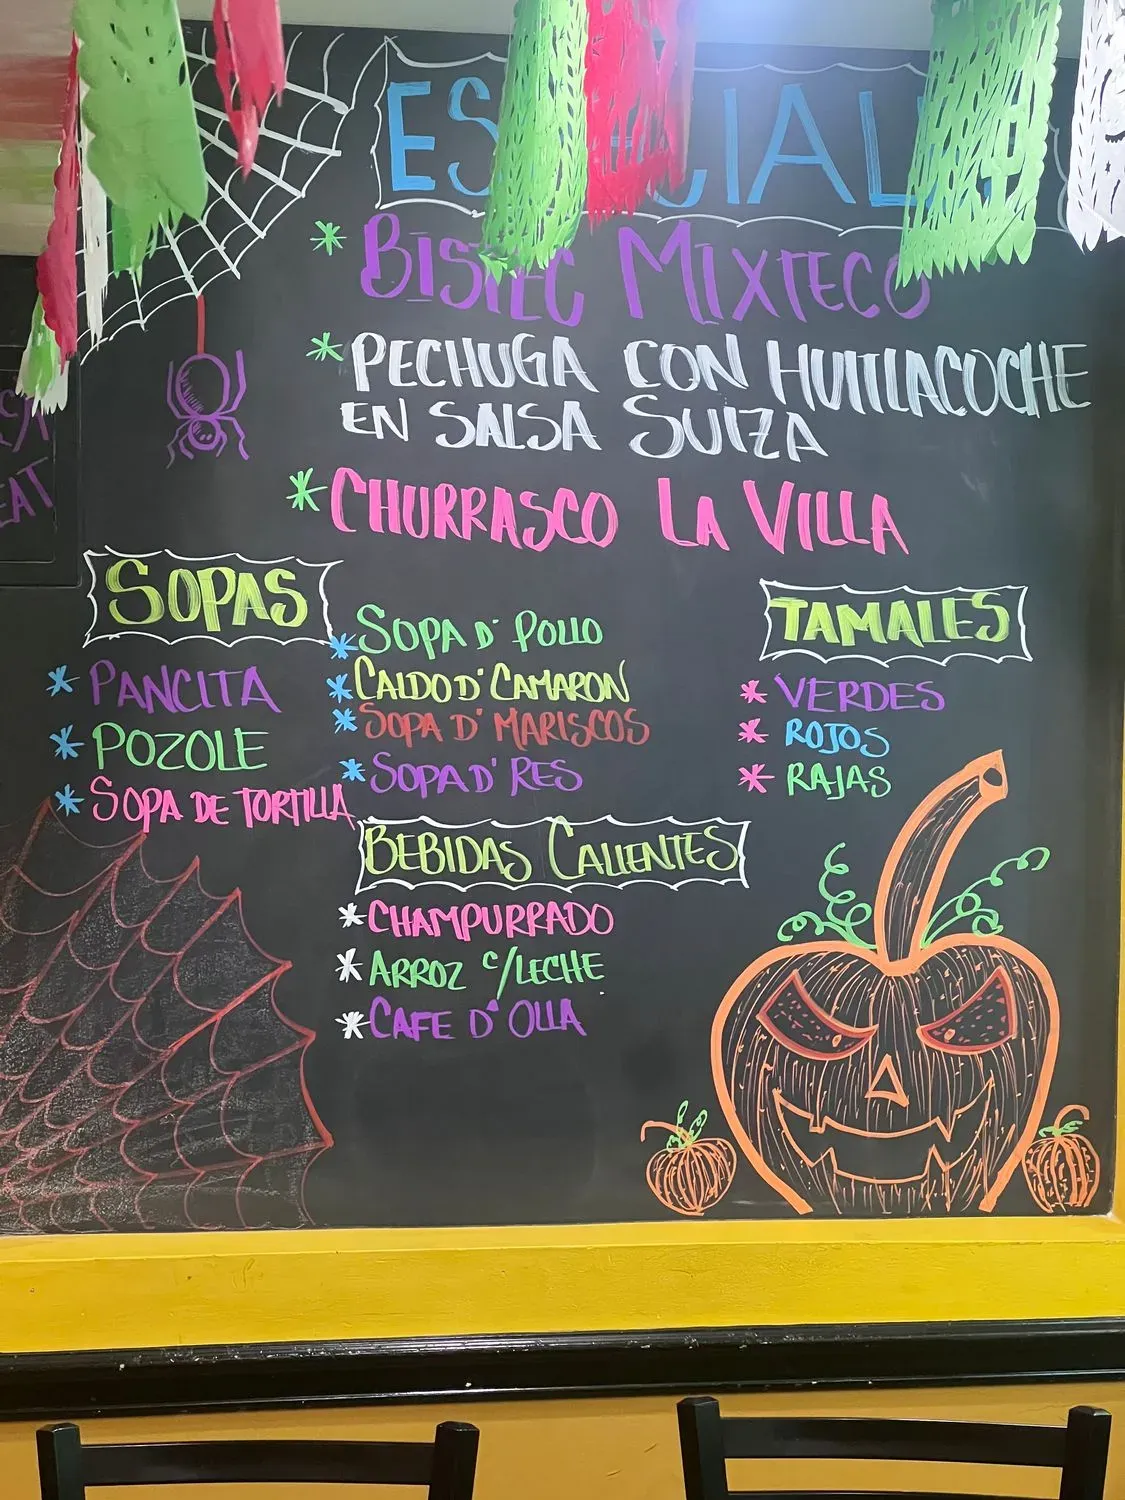 * BISTEC MIXTECO
* PECHUGA CON HUITLACOCHE
EN SALSA SUIZA
* CHURRASCO LA VILLA
SOPAS
* PANCITA
* POZOLE
* SOPA DE TORTILLA
* SOPA D' POLLO
* CALDO D' CAMARON
* SOPA D' MARISCOS
* SOPA D' RES
TAMALES
* VERDES
* ROJOS
* RAJAS
BEBIDAS CALIENTES
* CHAMPURRADO
* ARROZ C/LECHE
* CAFE D' OLLA